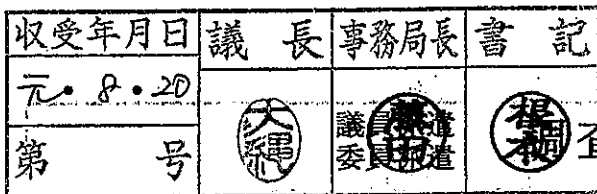 収受年月日 議長 事務局長 書記
元・8・20
第 号
大縄
議員派遣
委員派遣
調査